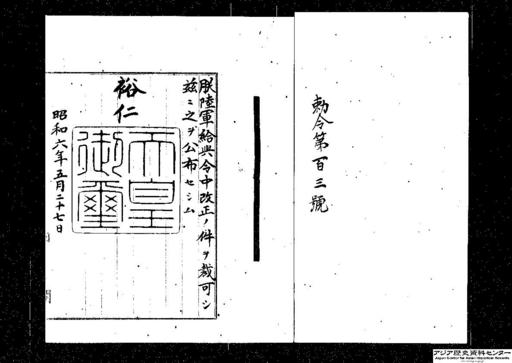 勅令第百三號
朕陸軍給與令中改正ノ件ヲ裁可シ
茲ニ之ヲ公布セシム
裕仁
天皇
御璽
昭和六年五月二十七日
アジア歴史資料センター
Japan Center for Asian Historical Records